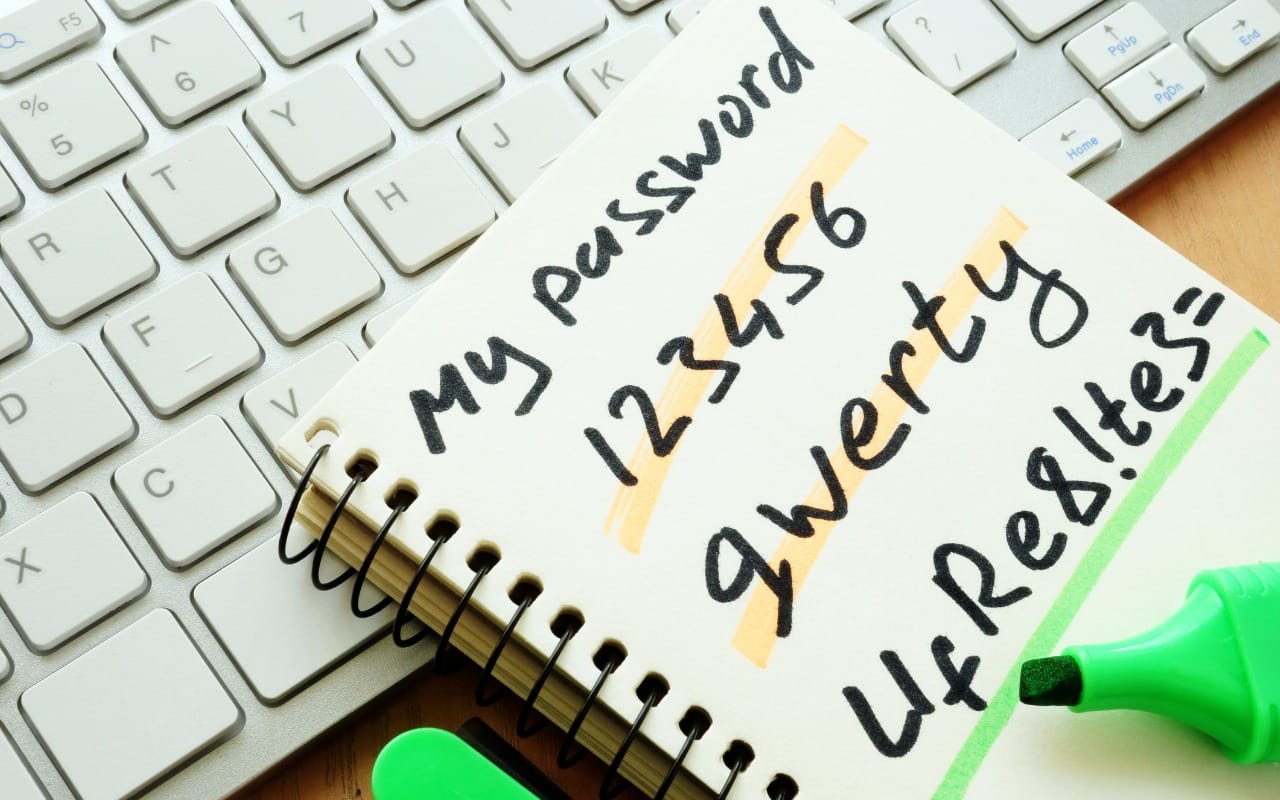 My password
123456
qwerty
UfRe8!te3=
F5
7
^
6
U
I
K
?
/
PgUp
PgDn
End
Home
%
5
Y
J
T
H
R
G
F
D
V
C
X